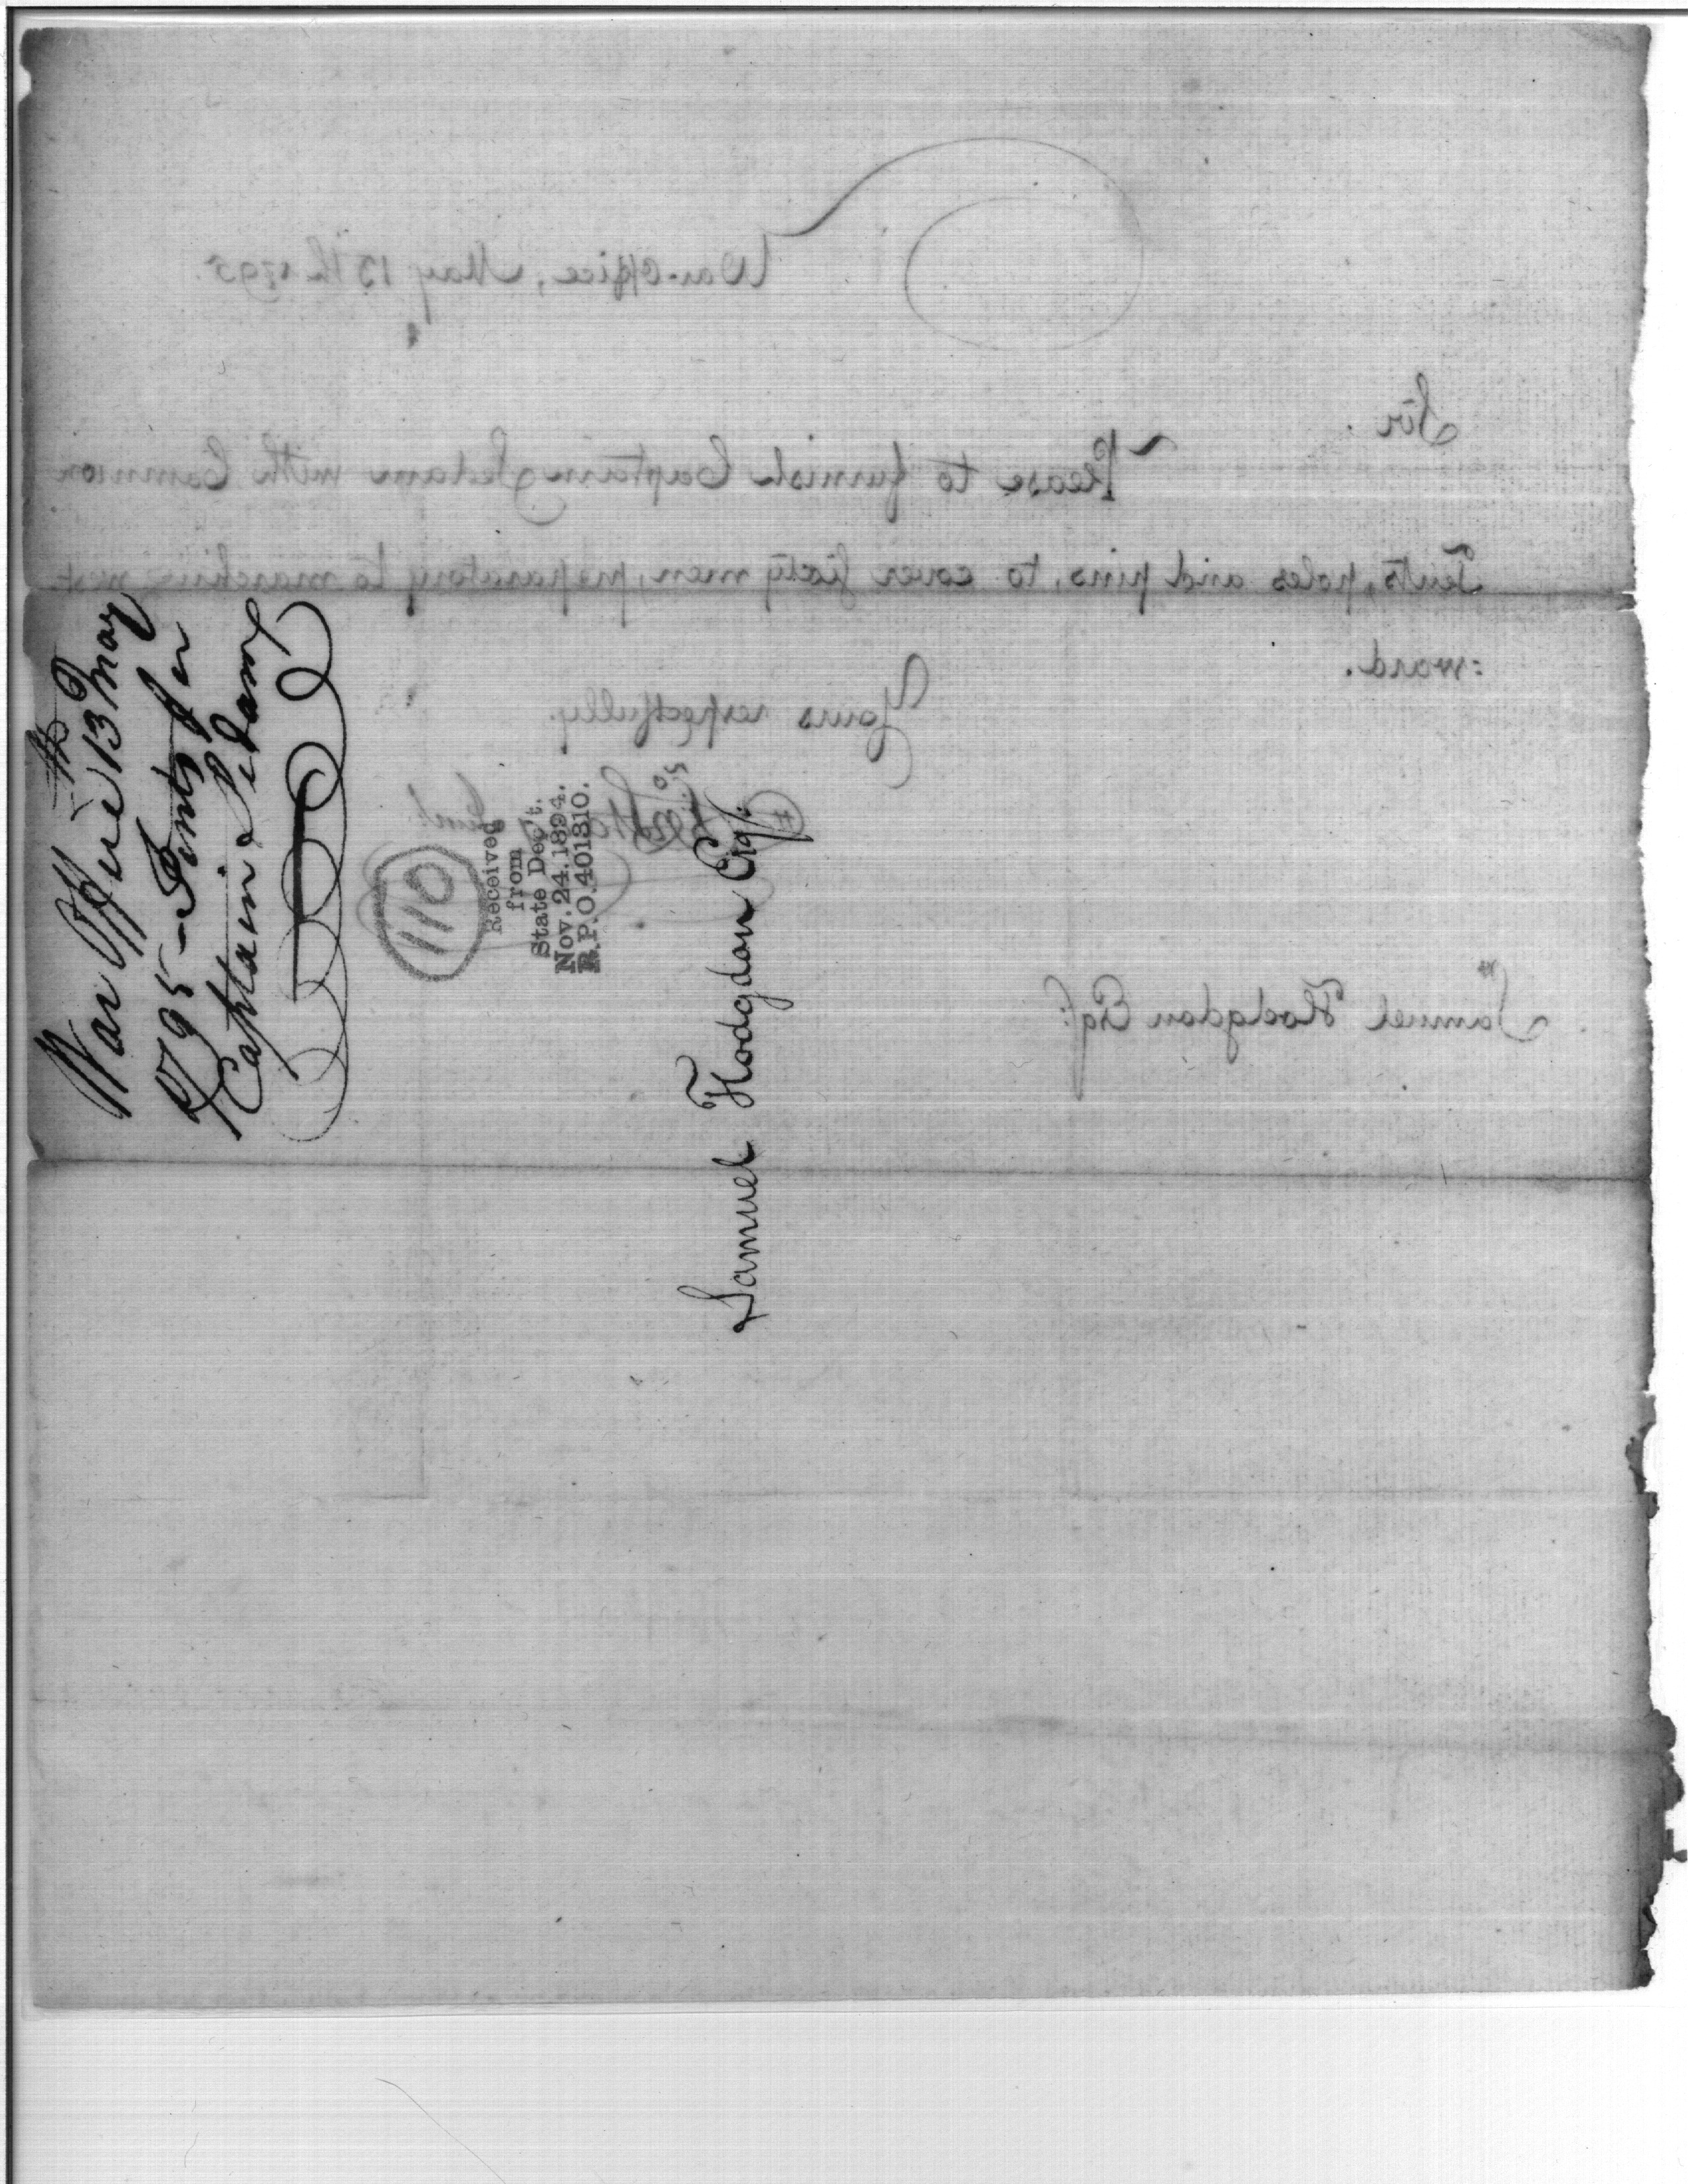 War Office, May 13th 1795.
Sir
Please to furnish Captain Pedam with Common
Tents, poles and pins, to cover sixty men, preparatory to marching west
=ward.
Yours respectfully.
Samuel Hodgdon Esqr:
War Office 13th May
1795 - Tents for
Captain Pedam
110
Received
from
State Dep't.
Nov. 24. 1894.
R.P.O. 401310.
Samuel Hodgdon Esqr: